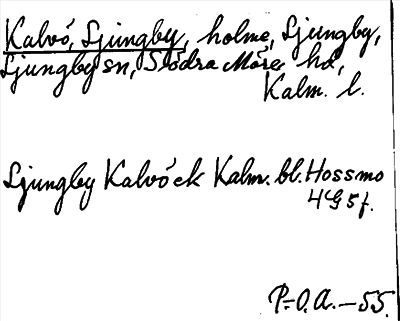 Kalvö, Ljungby, holme, Ljungby,
Ljungby sn, Södra Möre hd,
Kalm. l.
Ljungby Kalvö ek Kalm. bl. Hossmo
4G 5f.
P.-O.A.-55.